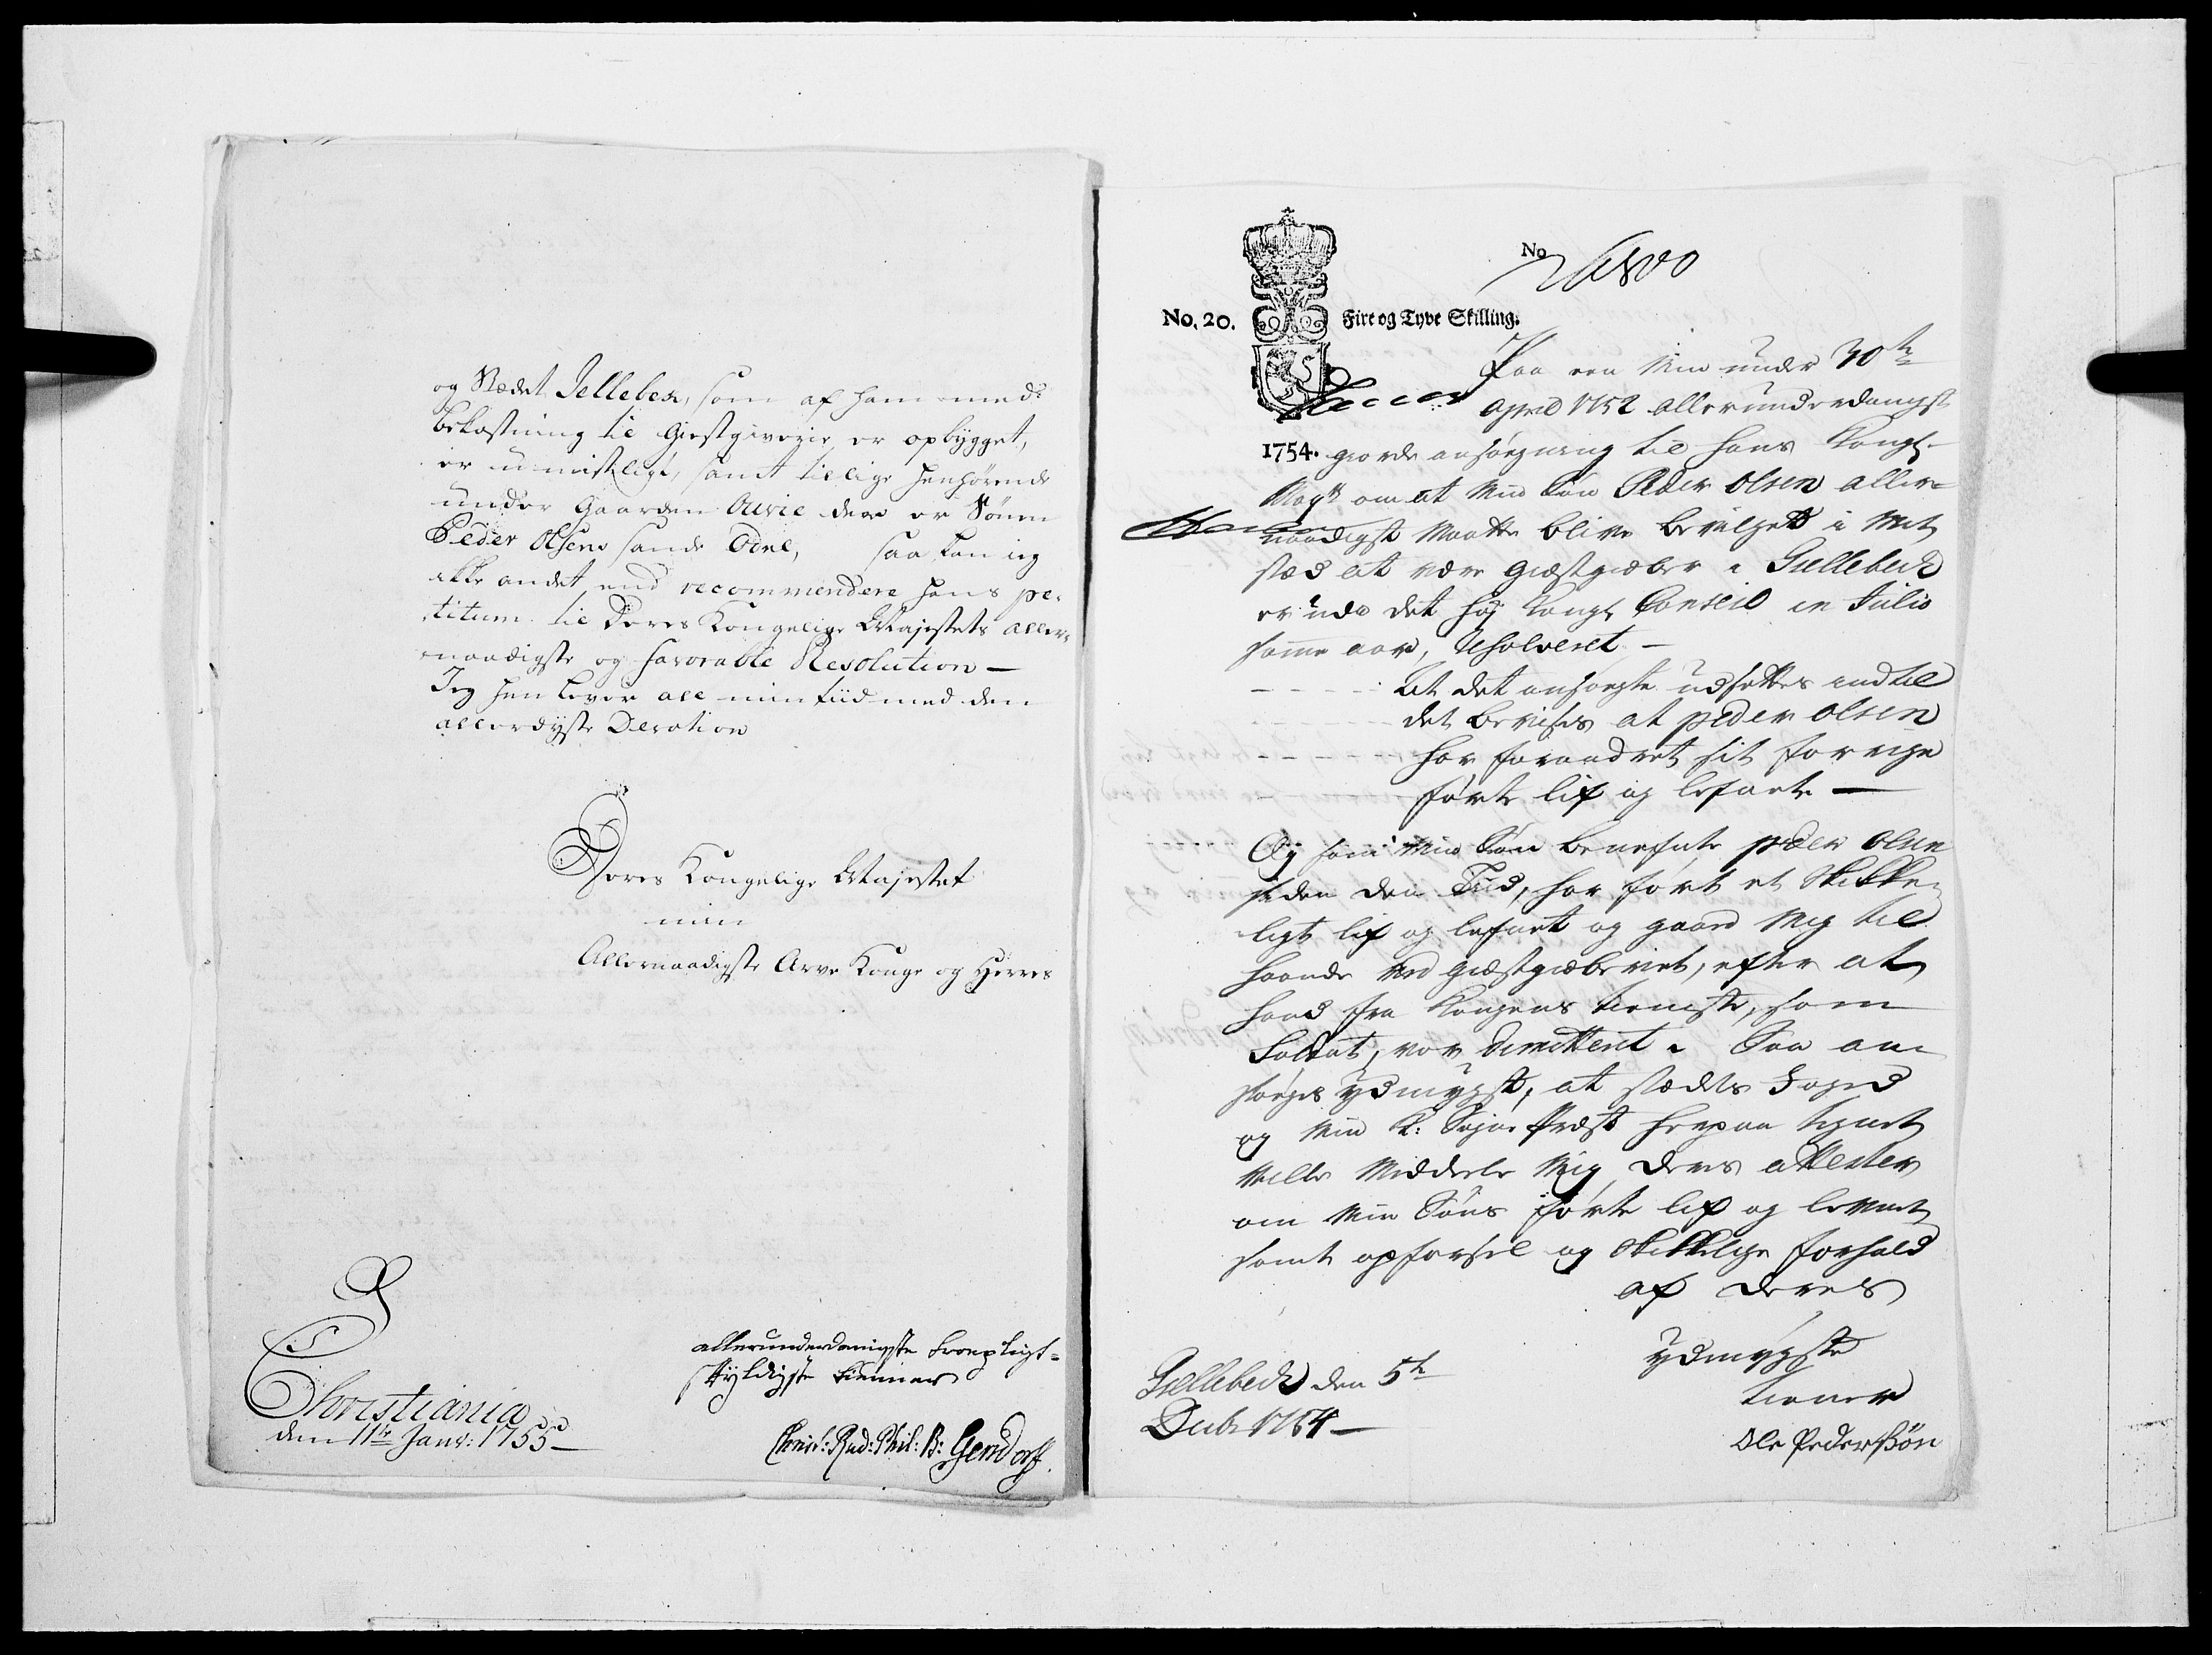 og Stædet Jellebek, som af ham med
bekostning til Giestgiverie er opbygget,
er umisteligt, samt tillige henhørende
under Gaarden Averie der er Sønnen
Peder Olsens sande Odel, saa kan ieg
ikke andet end recommendere hans pe-
titum til Deres Kongelige Majestets aller-
naadigste og favorable Resolution —
Jeg henlever all min tiid med den
allerdybste Devotion
Deres Kongelige Majestet
min
Allernaadigste Arve Konge og Herres
allerunderdanigste troepligt-
skyldigste tienner
Christiania
den 11te Janv: 1755 —
Christ: Rud: Phil: B: Gersdorff.
No
No. 20. Fire og Tyve Skilling.
Paa een min under 30te
April 1752 allerunderdanigst
1754. giorde ansøgning til hans Kongl.
Mayts om at min Søn Peder Olsen aller-
naadigst maatte blive bevilget i mit
sted at være giestgieber i Giellebeck
er udi det høy Kongl. Conseil in Julio
samme aar, Resolveret —
At det ansøgte udsættes indtil
det bevises at peder olsen
har forandret sit forrige
førte lif og lefnet —
Og som min Søn benefnte peder olsen
siden den Tiid, har ført et skikke-
ligt lif og lefnet og gaaed mig til
haande ved giestgieberiet, efter at
hand fra Kongens tieneste, som
Soldat, var dimitterit. Saa an-
søges ydmygst, at stædets Foged
og min K: Sogne Præst herpaa tegnet
ville meddeele mig deres attester
om min Søns førte lif og levnet
samt opførsel og skikkelige forhold
af deres
ydmygste
tiener
Giellebeck den 5te
Decbr 1754 —
Ole Pedersøn